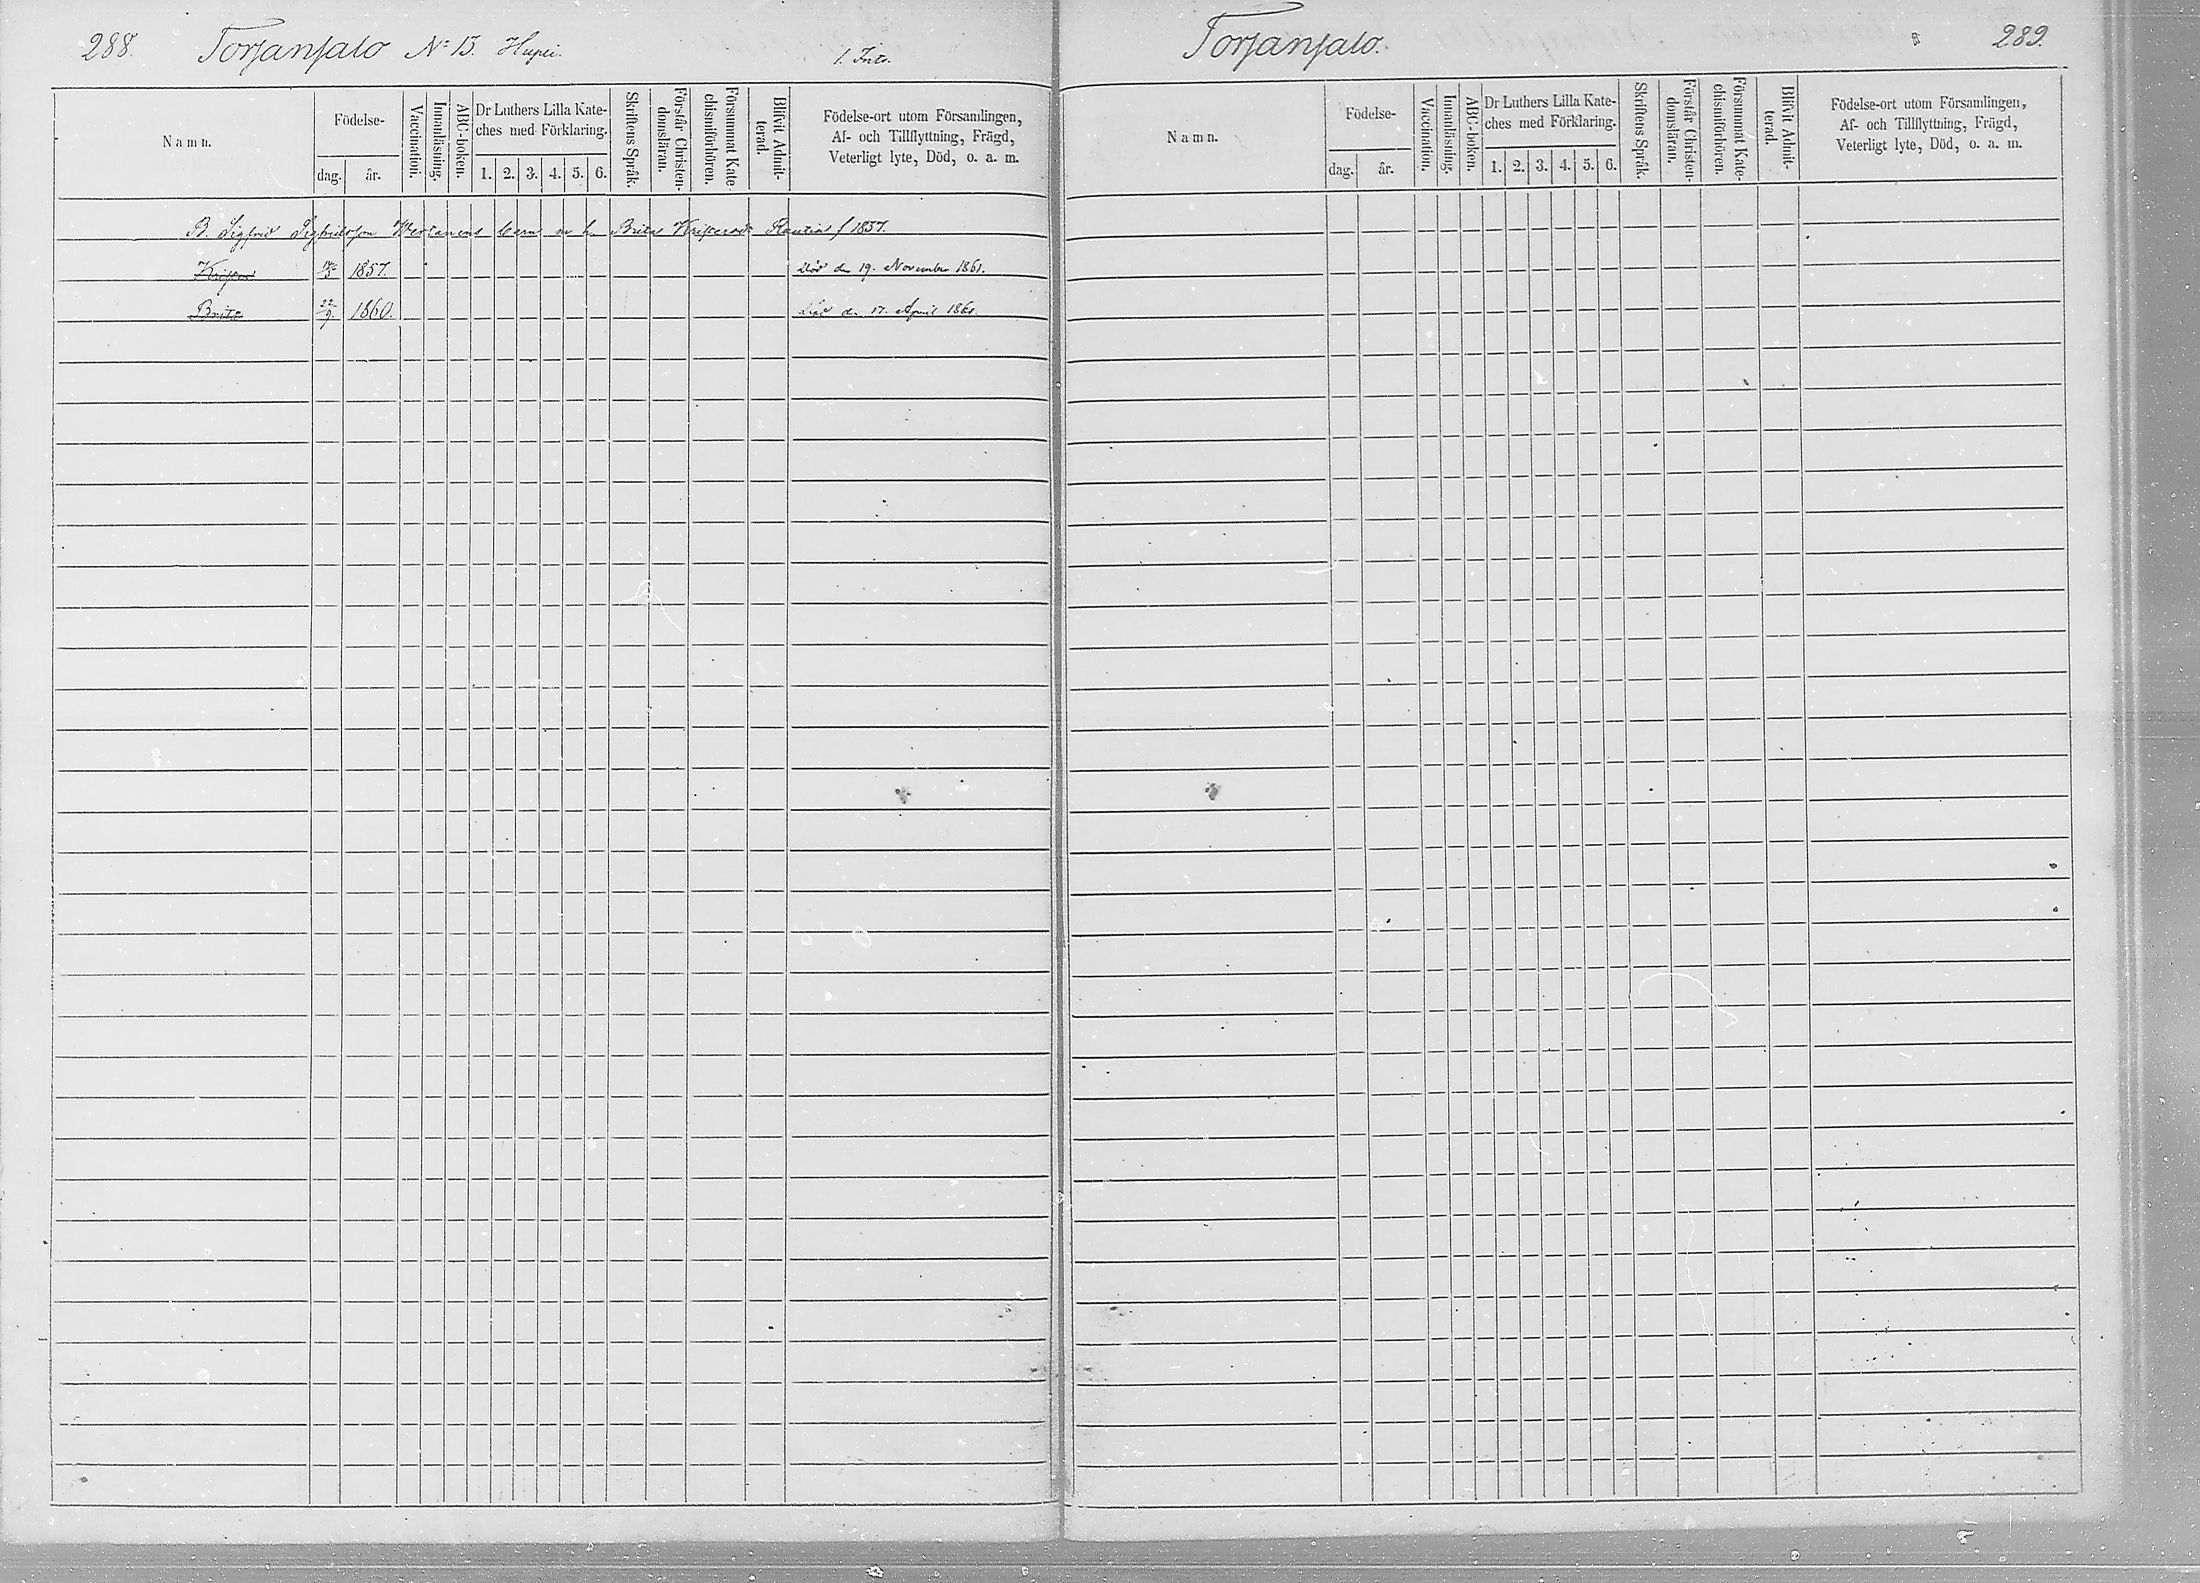 288. Torsansalo No 15. Hupei. 1. Fnts.
Namn.
Födelse-
dag. år.
Vaccination.
Innanläsning.
ABC-boken.
Dr Luthers Lilla Kate-
ches med Förklaring.
1. 2. 3. 4. 5. 6.
Skriftens Språk.
Förstår Christen-
domsläran.
Försummat Kate
chismiförhören.
Blifvit Admit-
terad.
Födelse-ort utom Församlingen,
Af- och Tillflyttning, Frägd,
Veterligt lyte, Död, o. a. m.
B. Sigfrid Sigfridsson Wertanens barn m h. Brita Krisersdr Rautia f 1837.
1857. Död den 19. November 1861.
Brita 22/9. 1860. Död d. 17. April 1861.
Torsansalo. 289.
Namn.
Födelse-
dag. år.
Vaccination.
Innanläsning.
ABC-boken.
Dr Luthers Lilla Kate-
ches med Förklaring.
1. 2. 3. 4. 5. 6.
Skriftens Språk.
Förstår Christen-
domsläran.
Försummat Kate-
chismiförhören.
Blifvit Admit-
terad.
Födelse-ort utom Församlingen,
Af- och Tillflyttning, Frägd,
Veterligt lyte, Död, o. a. m.